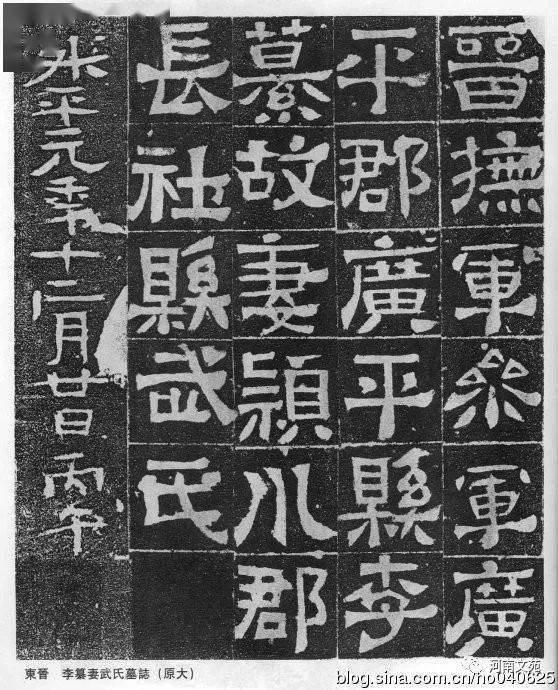 晉撫軍參軍廣
平郡廣平縣李
纂故妻潁川郡
長社縣武氏
升平元年十二月廿日丙午
東晉 李纂妻武氏墓誌（原大）
河南文苑
blog.sina.com.cn/ho040625